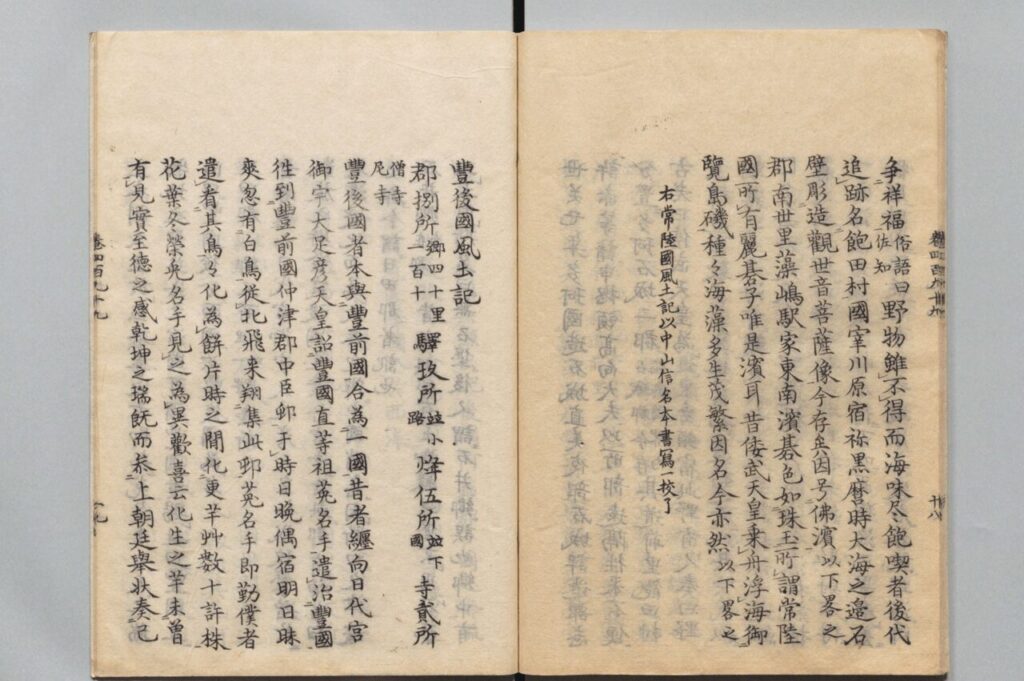 争祥福俗語曰佐知野物雖不得而海味尽飽喫者後代
追跡名飽田村國宰川原宿祢黒麿時大海之邉石
壁彫造觀世音菩薩像今存矣因号佛濱以下畧之
郡南世里藻嶋駅家東南濱碁色如珠玉所謂常陸
國所有麗碁子唯是濱耳昔倭武天皇乗舟浮海御
覽島磯種々海藻多生茂繁因名今亦然以下畧之
右常陸國風土記以中山信名本書寫一挍了
豐後國風土記
郡捌所鄉四十里一百十驛玖所並小路烽伍所並下國寺貳所
僧寺尼寺
豐後國者本與豐前國合為一國昔者纏向日代宮
御宇大足彦天皇詔豐國直等祖莵名手遣治豐國
徃到豐前國仲津郡中臣邨于時日晩偶宿明日昧
爽忽有白鳥從北飛来翔集此邨莵名手即勤僕者
遣看其鳥々化為餅片時之間化更芋艸數十許株
花葉冬榮莵名手見之為異歡喜云化生之芋未曽
有見實至德之感乾坤之瑞既而叅上朝廷舉状奏已